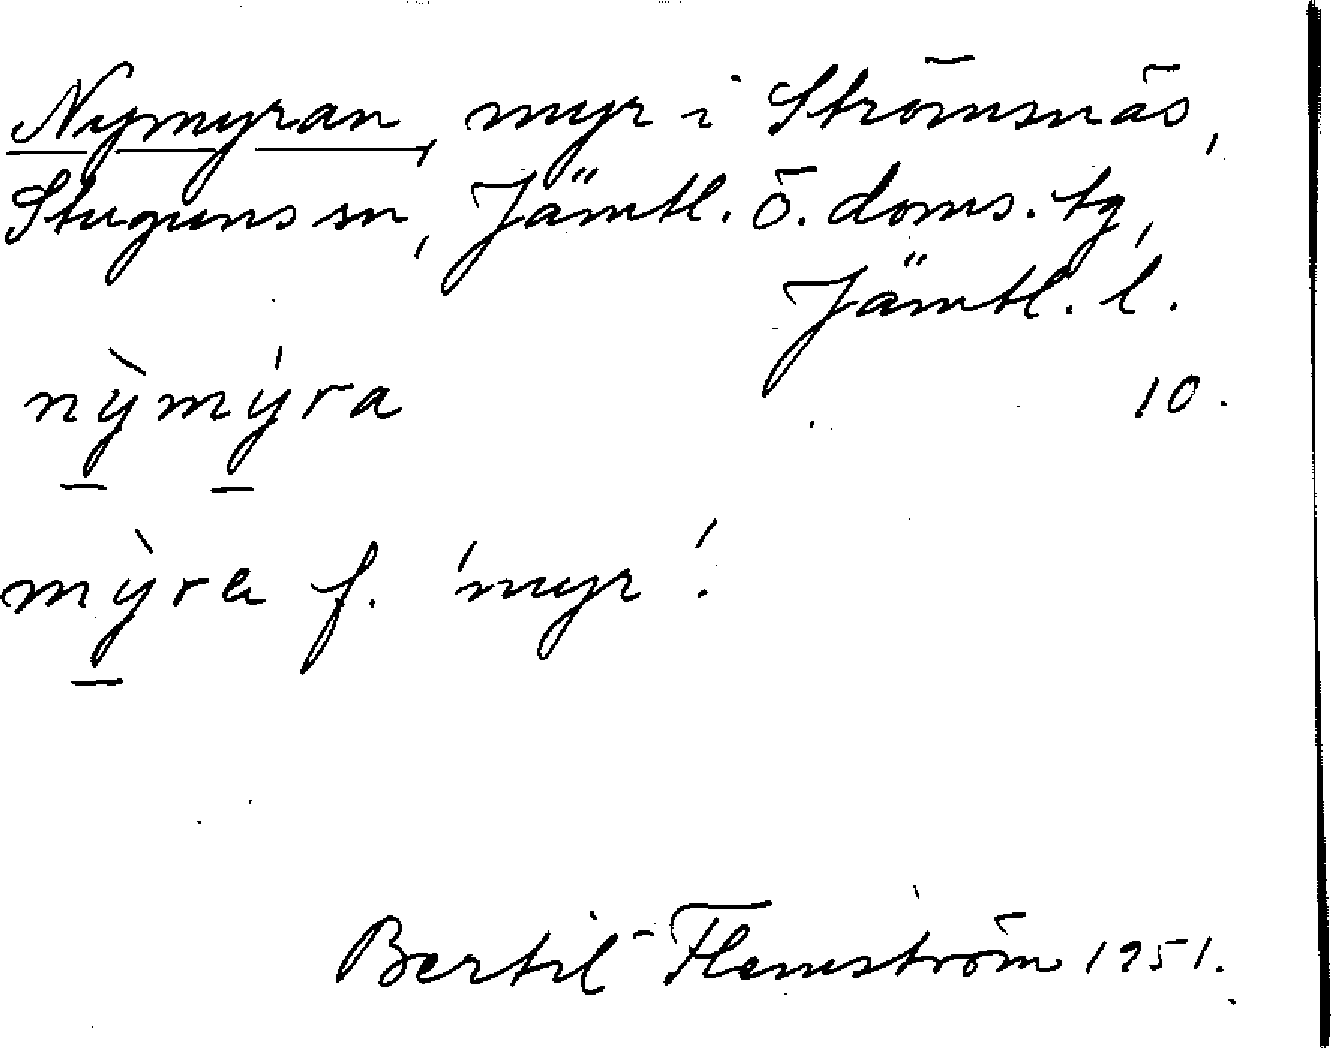 Nymyran, myr i Strömsnäs,
Stuguns sn, Jämtl. ö. doms. tg,
Jämtl. l.
nỳmýra 10.
mỳra f. 'myr'.
Bertil Flemström 1951.